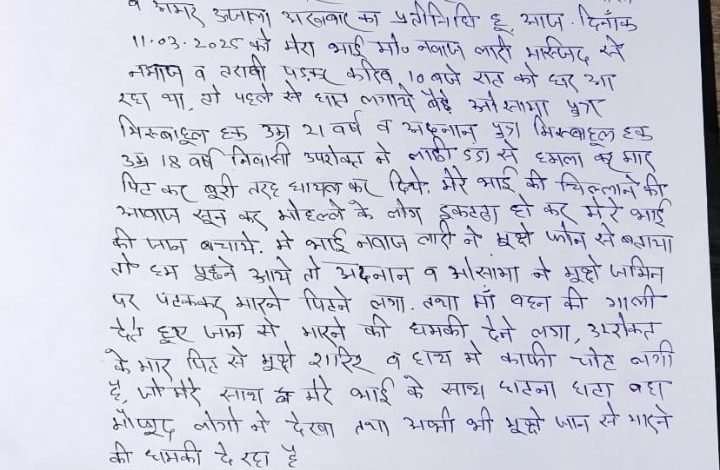 व अमर उजाला अखबार का प्रतीनिधि हू आज. दिनाँक
11.03.2025 को मेरा भाई मो० नवाज लारी मस्जिद से
नमाज व तरावी पड़कर करिब 10 बजे रात को घर आ
रहा था, तो पहले से घात लगाये बैठे ओसामा पुत्र
मिस्बाहूल हक उम्र 21 वर्ष व अदनान पुत्र मिस्बाहूल हक
उम्र 18 वर्ष निवासी उपरोक्त ने लाठी डंडा से हमला कर मार
पिट कर बूरी तरह घायल कर दिये. मेरे भाई की चिल्लाने की
आवाज सून कर मोहल्ले के लोग इकटठा हो कर मेरे भाई
की जान बचाये. मे भाई नवाज लारी ने मूझे फोन से बताया
तो हम पूछने आये तो अदनान व ओसामा ने मूझे जमिन
पर पटककर मारने पिटने लगा. तथा माँ बहन की गाली
देते हूए जान से मारने की धमकी देने लगा, उपरोक्त
के मार पिट से मूझे शरिर व हाथ मे काफी चोट लगी
है, जो मेरे साथ व मेरे भाई के साथ घटना घटा वहा
मौजूद लोगो ने देखा तथा अभी भी मूझे जान से मारने
की धमकी दे रहा है